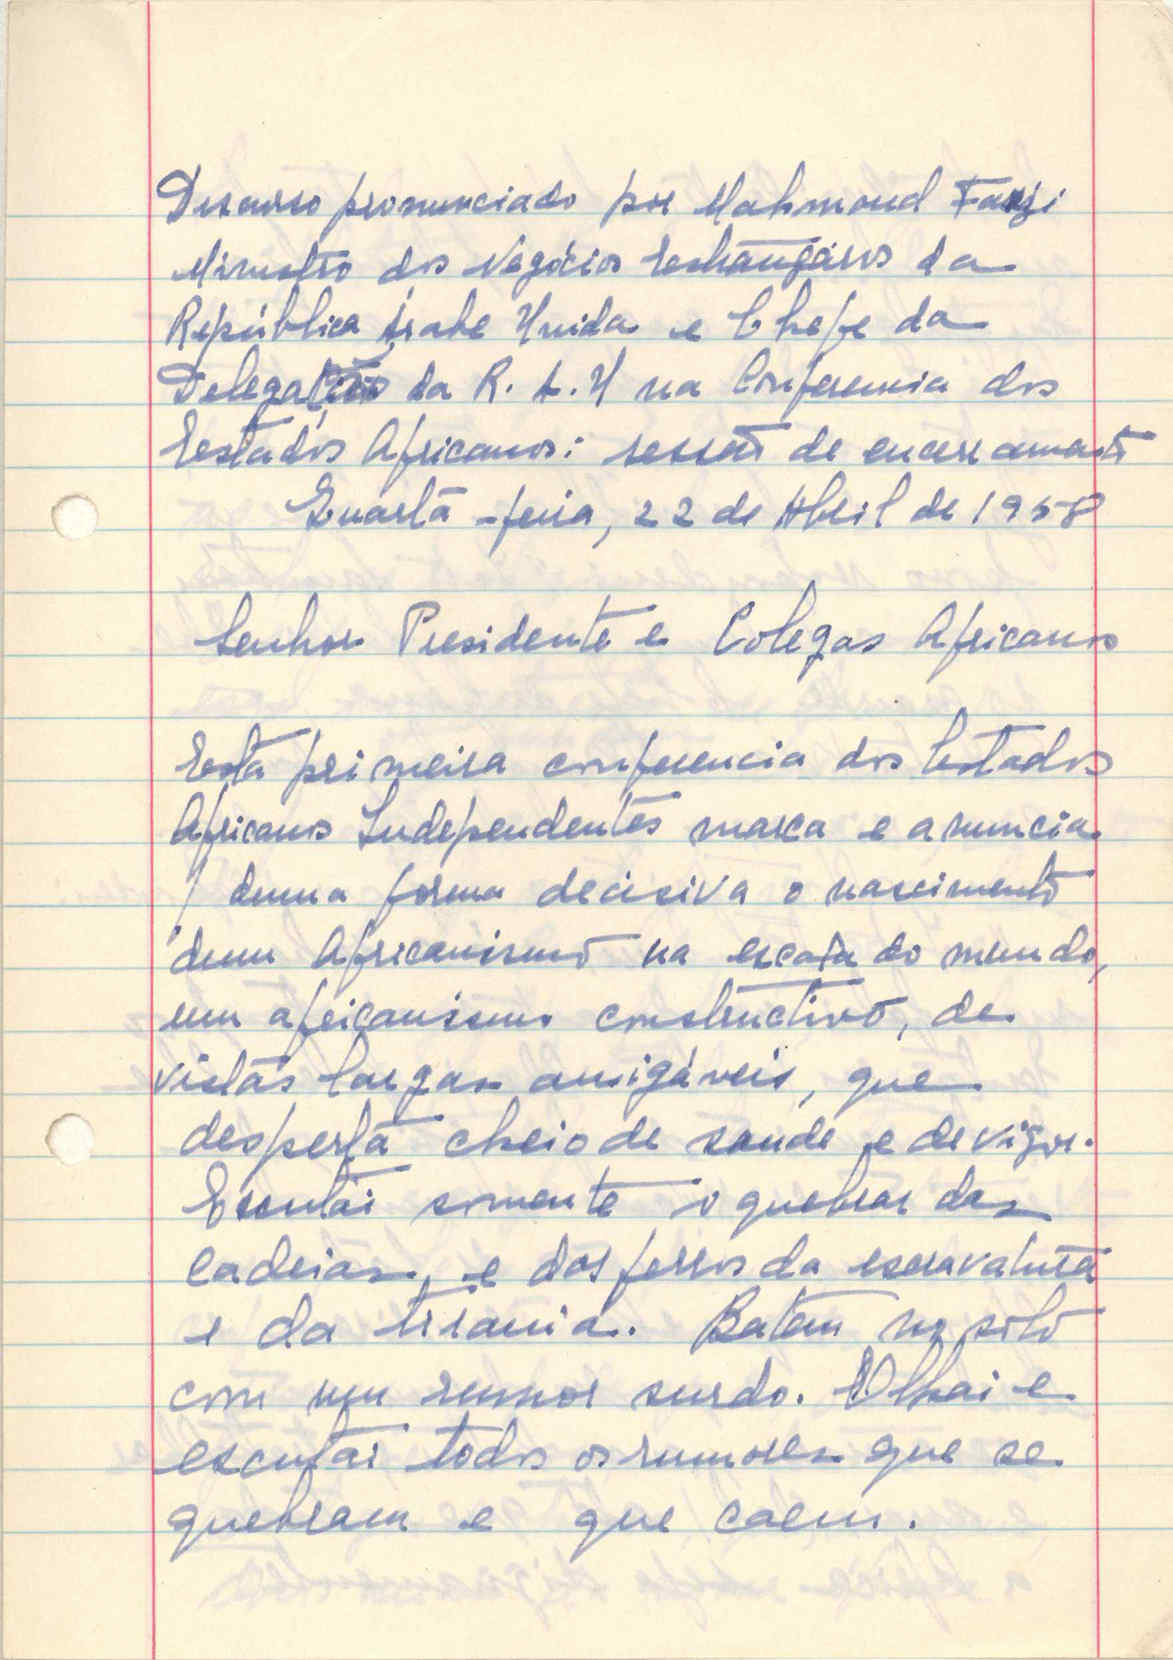 Discurso pronunciado por Mahmoud Fauzi
Ministro dos Negócios Estrangeiros da
República Árabe Unida e Chefe da
Delegação da R. A. U na Conferencia dos
Estados Africanos: sessão de encerramento
Quarta-feira, 22 de Abril de 1958
Senhor Presidente e Colegas Africanos
Esta primeira conferencia dos Estados
Africanos Independentes marca e anuncia
duma forma decisiva o nascimento
dum Africanismo na escala do mundo,
um africanismo constructivo, de
vistas largas amigáveis, que
desperta cheio de saude e de vigor.
Escutai somente o quebrar das
cadeias, e dos ferros da escravatura
e da tirania. Batem no solo
com um rumor surdo. Olhai e
escutai todos os rumores que se
quebram e que caem.